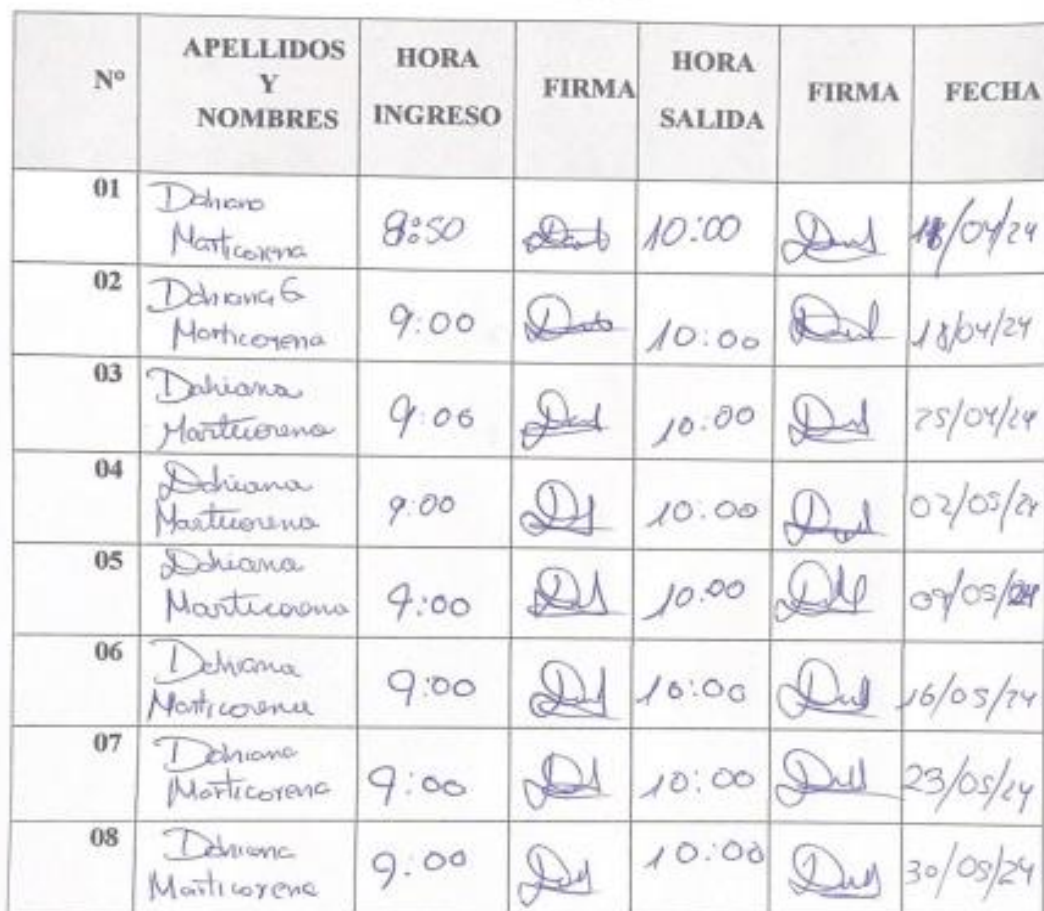 Nº APELLIDOS Y NOMBRES HORA INGRESO FIRMA HORA SALIDA FIRMA FECHA
01 Dahiana Marticorena 8:50 10:00 /04/24
02 Dahiana G Marticorena 9:00 10:00 18/04/24
03 Dahiana Marticorena 9:06 10:00 25/04/24
04 Dahiana Marticorena 9:00 10:00 02/05/24
05 Dahiana Marticorena 9:00 10:00 09/05/24
06 Dahiana Marticorena 9:00 10:00 16/05/24
07 Dahiana Marticorena 9:00 10:00 23/05/24
08 Dahiana Marticorena 9:00 10:00 30/05/24